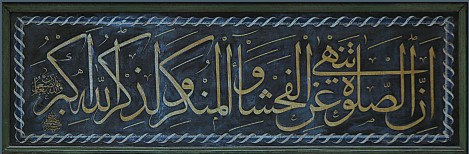 إنّ الصّلوة تنهى عن الفحشاء والمنكر ولذكر الله اكبر